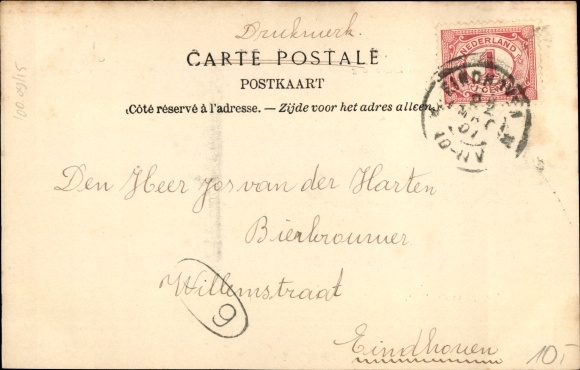 Drukwerk.
CARTE POSTALE
POSTKAART
(Côté réservé à l'adresse. — Zijde voor het adres alleen.)
NEDERLAND
1
EINDHOVEN
Den Heer Jos van der Harten
Bierbrouwer
Willemstraat
6
Eindhoven
10.-